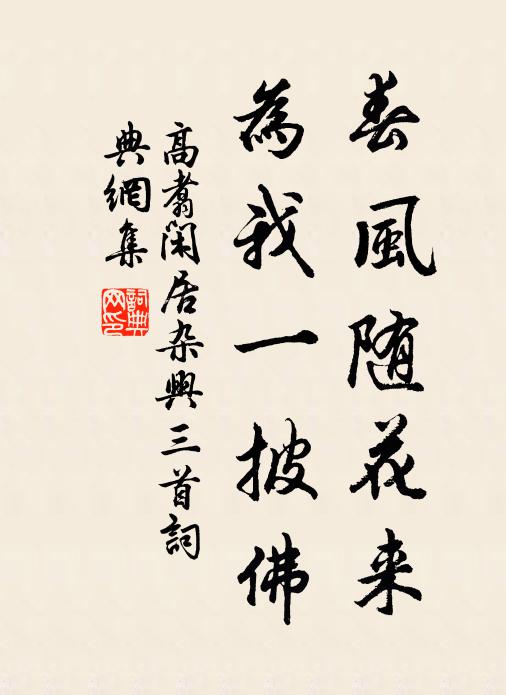 春風随花来
為我一披佛
高翥閑居杂興三首詞
典網集
詞典網印